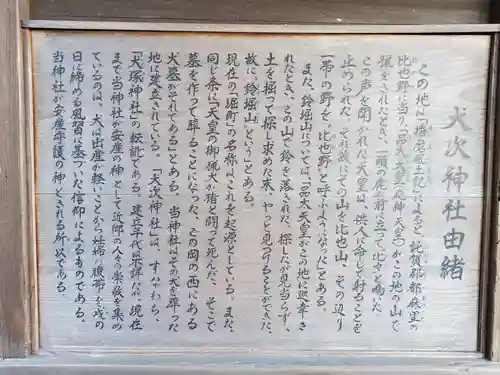 犬次神社由緒
この地は「播磨風土記」によると託賀郡都麻里の
比也野に当り「品太天皇(応神天皇)がこの地の山で
狩をされたとき、一頭の鹿が前に立て比々と鳴いた。
この声を聞かれた天皇は、供人に命じて射ることを
止められた。それ故にその山を比也山、その辺り
一帯の野を、比也野と呼ぶようになった」とある。
また、鈴堀山については、「品太天皇がこの地に巡幸さ
れたとき、この山で鈴を落された。探したが見当らず、
土を掘って探し求めた末、やっと見つけることができた。
故に、鈴堀山という」とある。
現在の「堀町」の名称はこれを起源としている。また、
同じ条に「天皇の御猟犬が猪と闘って死んだ。そこで
墓を作って葬ることになった。この岡の西にある
犬墓がそれである」とある。当神社はその犬を葬った
地に建立されている。「犬次神社」は、すなわち、
「犬塚神社」の転訛である。建立年代は不詳だが、現在
まで当神社が安産の神として近郷の人々の崇敬を集め
ているのは、犬は出産が軽いことから妊婦が腹帯を戌の
日に締める風習に基づいた信仰によるものである。
当神社が安産守護の神とされる所以である。